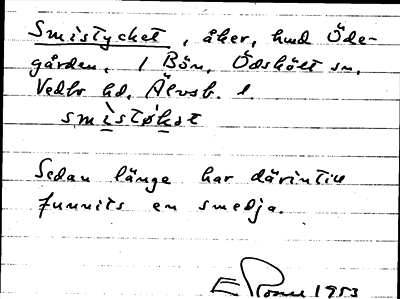 Smistycket, åker, hmd Öde-
gården, 1 Bön, Ödskölt sn,
Vedbo hd, Älvsb. l.
smìstỳkət
Sedan länge har därintill
funnits en smedja.
1953